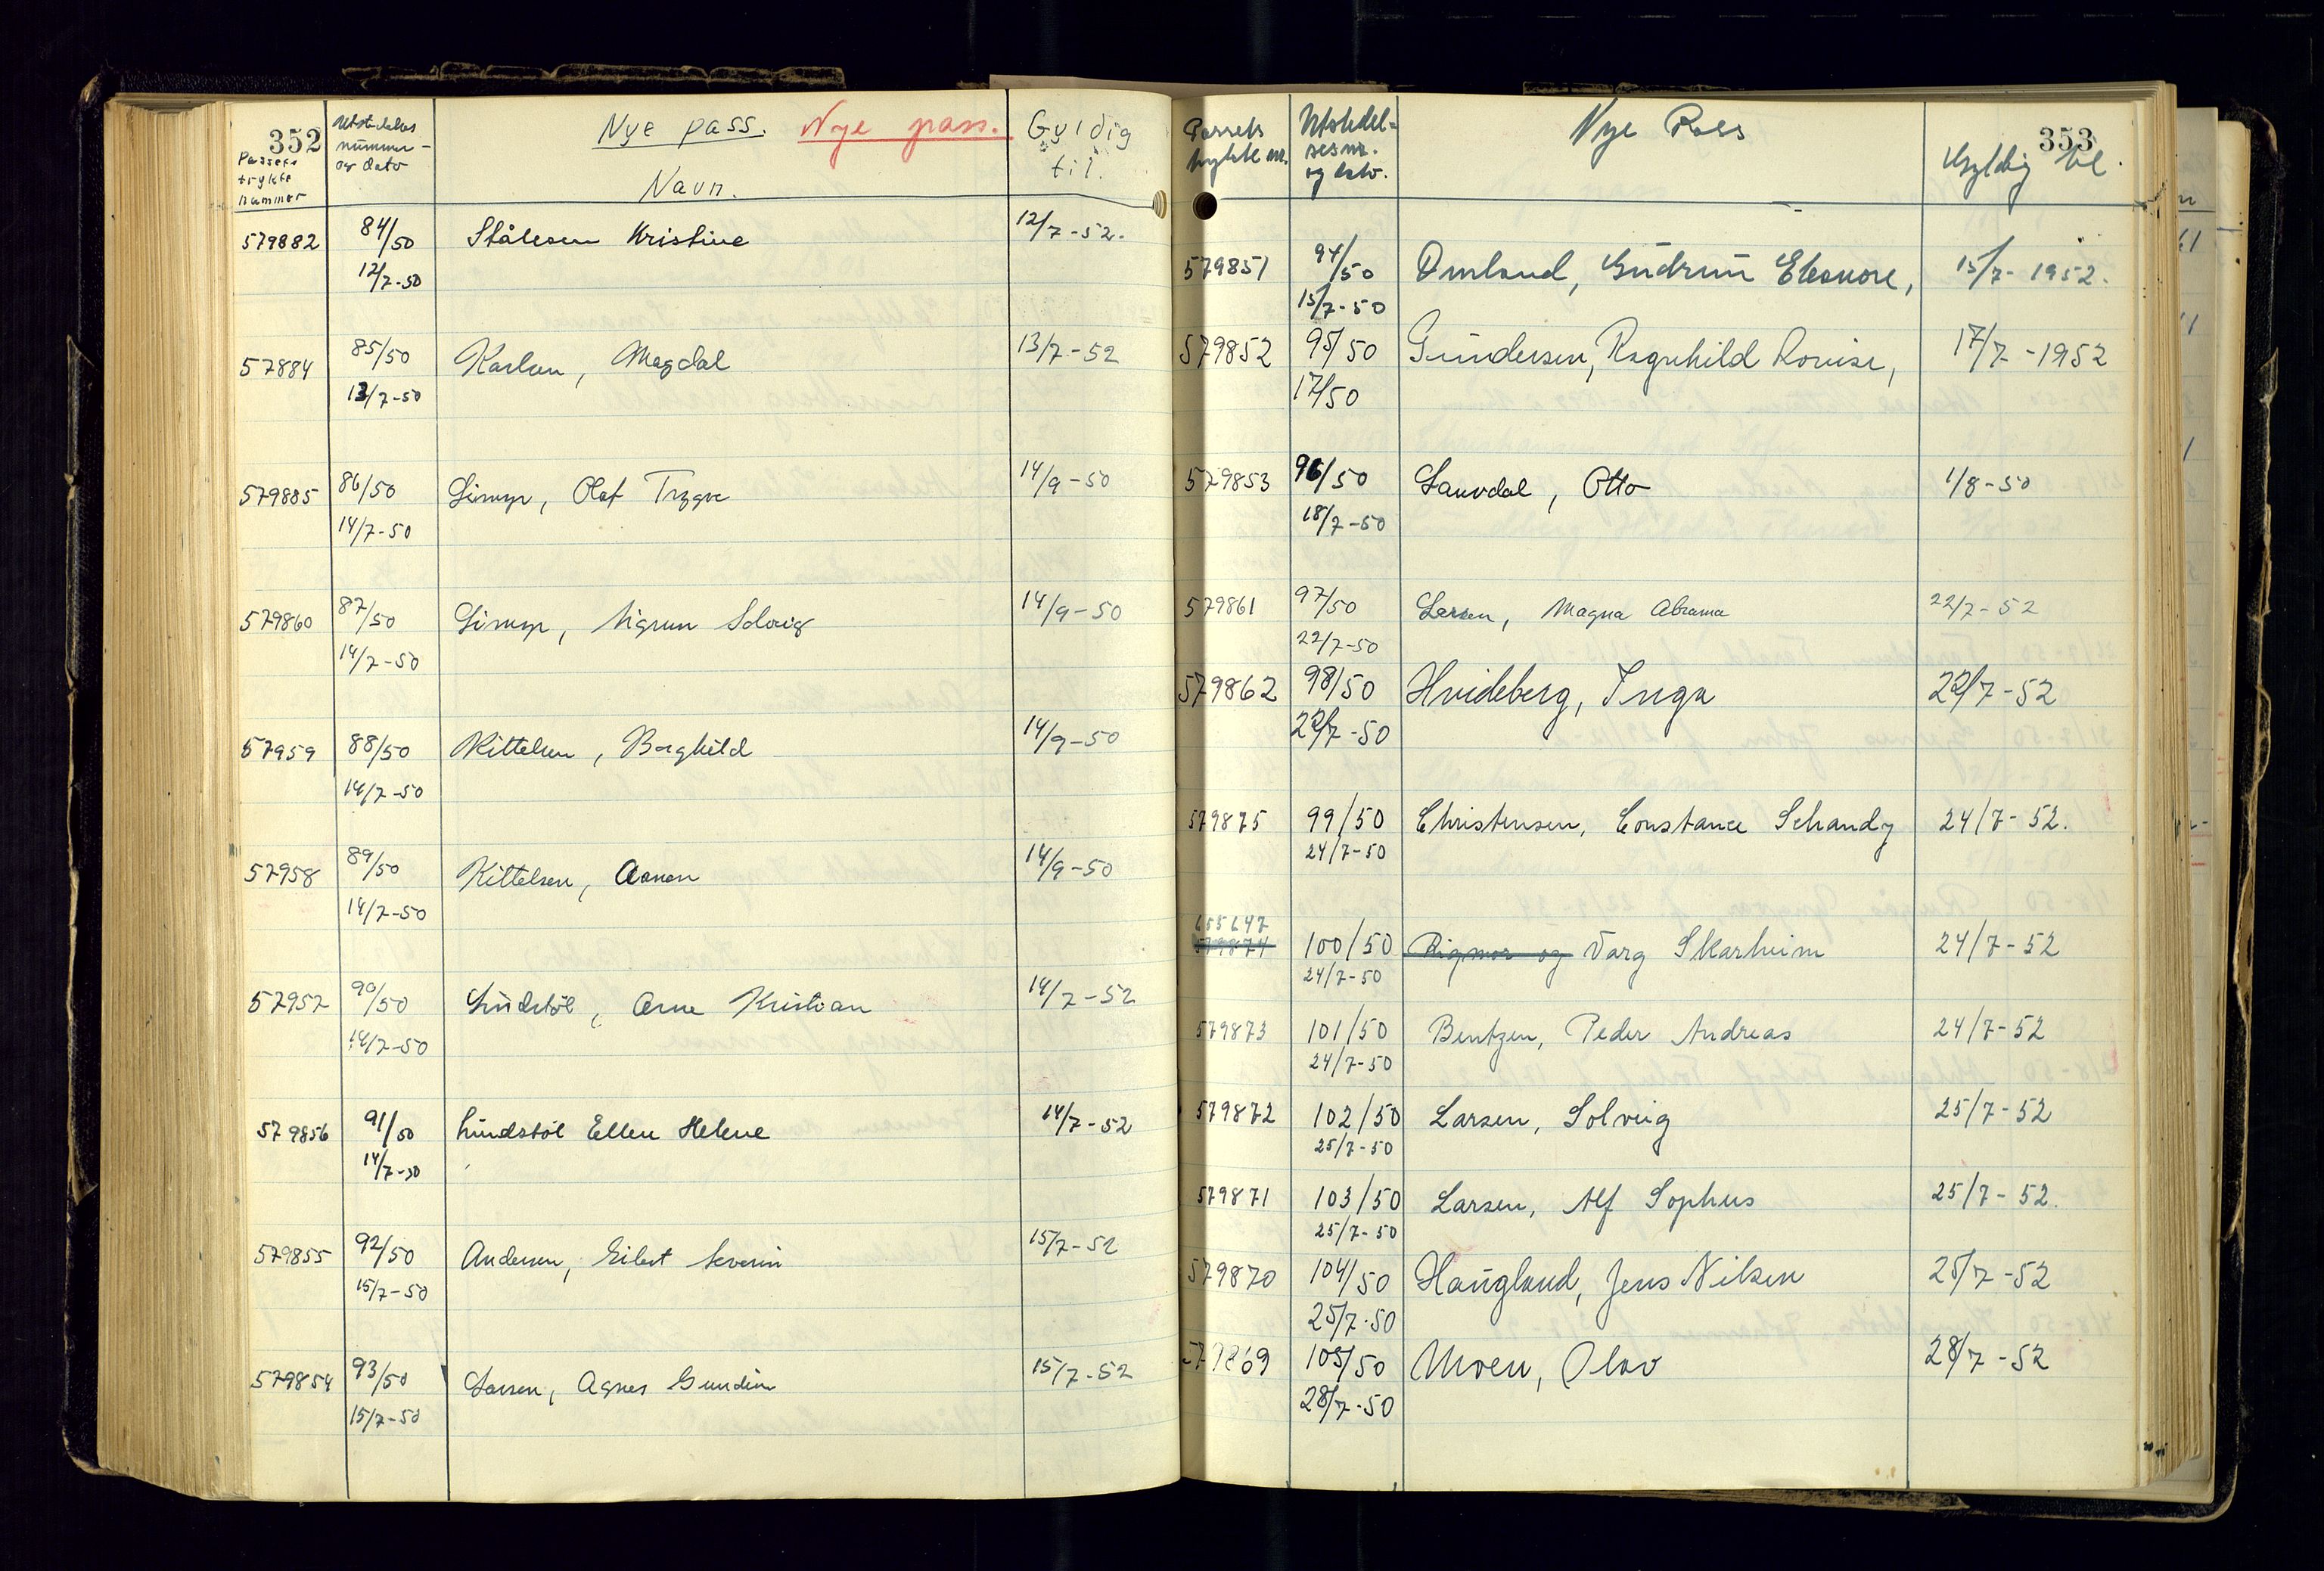 352
Passets
trykte
nummer
Utstedelses
nummer-
og dato
Nye pass. Nye pass.
Navn.
Gyldig
til.
579882 84/50 Stålesen Kristine 12/7-52.
12/7-50
57884 85/50 Karlsen, Magdal 13/7-52
13/7-50
579885 86/50 Limyr, Olaf Trygve 14/9-50
14/7-50
579860 87/50 Limyr, Sigrun Solveig 14/9-50
14/7-50
57959 88/50 Kittelsen, Borghild 14/9-50
14/7-50
57958 89/50 Kittelsen, Aanen 14/9-50
14/7-50
57957 90/50 Lindstøl, Arne Kristian 14/7-52
14/7-50
579856 91/50 Lindstøl Ellen Helene 14/7-52
14/7-50
579855 92/50 Andersen, Eilert Severin 15/7-52
15/7-50
579854 93/50 Larsen, Agnes Gundine 15/7-52
15/7-50
353
Passets
trykte nr.
Utstedel-
ses nr.
og dato.
Nye Pass
Gyldig til.
579851 94/50 Omland, Gudrun Eleonore, 15/7-1952.
15/7-50
579852 95/50 Gundersen, Ragnhild Lovise, 17/7-1952
17/50
579853 96/50 Lauvdal, Otto 1/8-50
18/7-50
579861 97/50 Larsen, Magna Abrama 22/7-52
22/7-50
579862 98/50 Hvideberg, Inga 22/7-52
22/7-50
579875 99/50 Christensen, Constance Schandy 24/7-52.
24/7-50
655647
579874 100/50 Rigmor og Varg Skarheim 24/7-52
24/7-50
579873 101/50 Bentzen, Peder Andreas 24/7-52
24/7-50
579872 102/50 Larsen, Solveig 25/7-52
25/7-50
579871 103/50 Larsen, Alf Sophus 25/7-52.
25/7-50
579870 104/50 Haugland, Jens Nilsen 25/7-52
25/7-50
579869 105/50 Moen, Olav 28/7-52
28/7-50